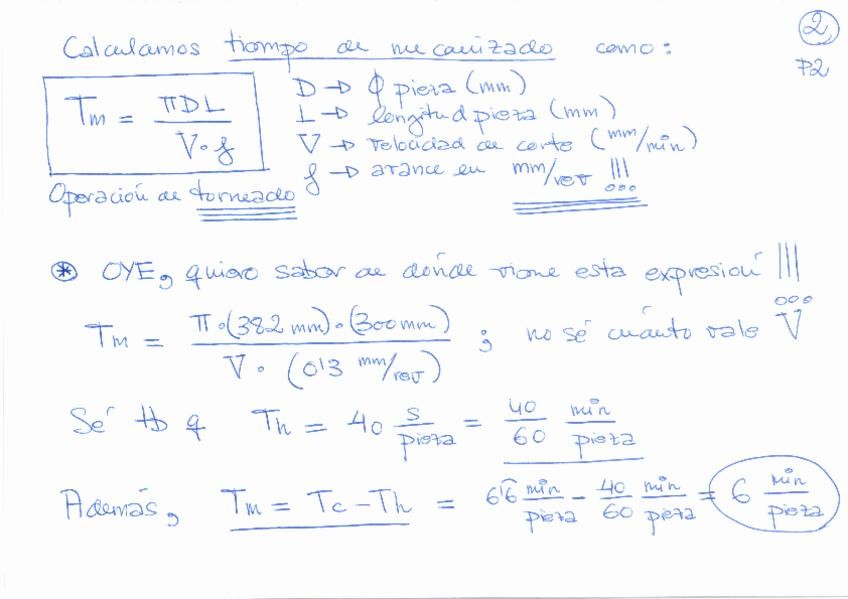 Calculamos tiempo de mecanizado como:
2
P2
Tm = πDL / V·f
D → ϕ pieza (mm)
L → longitud pieza (mm)
V → velocidad de corte (mm/min)
f → avance en mm/rev !!!
Operación de torneado
* OYE, quiero saber de dónde viene esta expresión !!!
Tm = π·(382 mm)·(300mm) / V·(0'3 mm/rev) ; no sé cuánto vale V
Sé tb q Th = 40 s/pieza = 40/60 min/pieza
Además, Tm = Tc - Th = 6'6 min/pieza - 40/60 min/pieza = 6 min/pieza